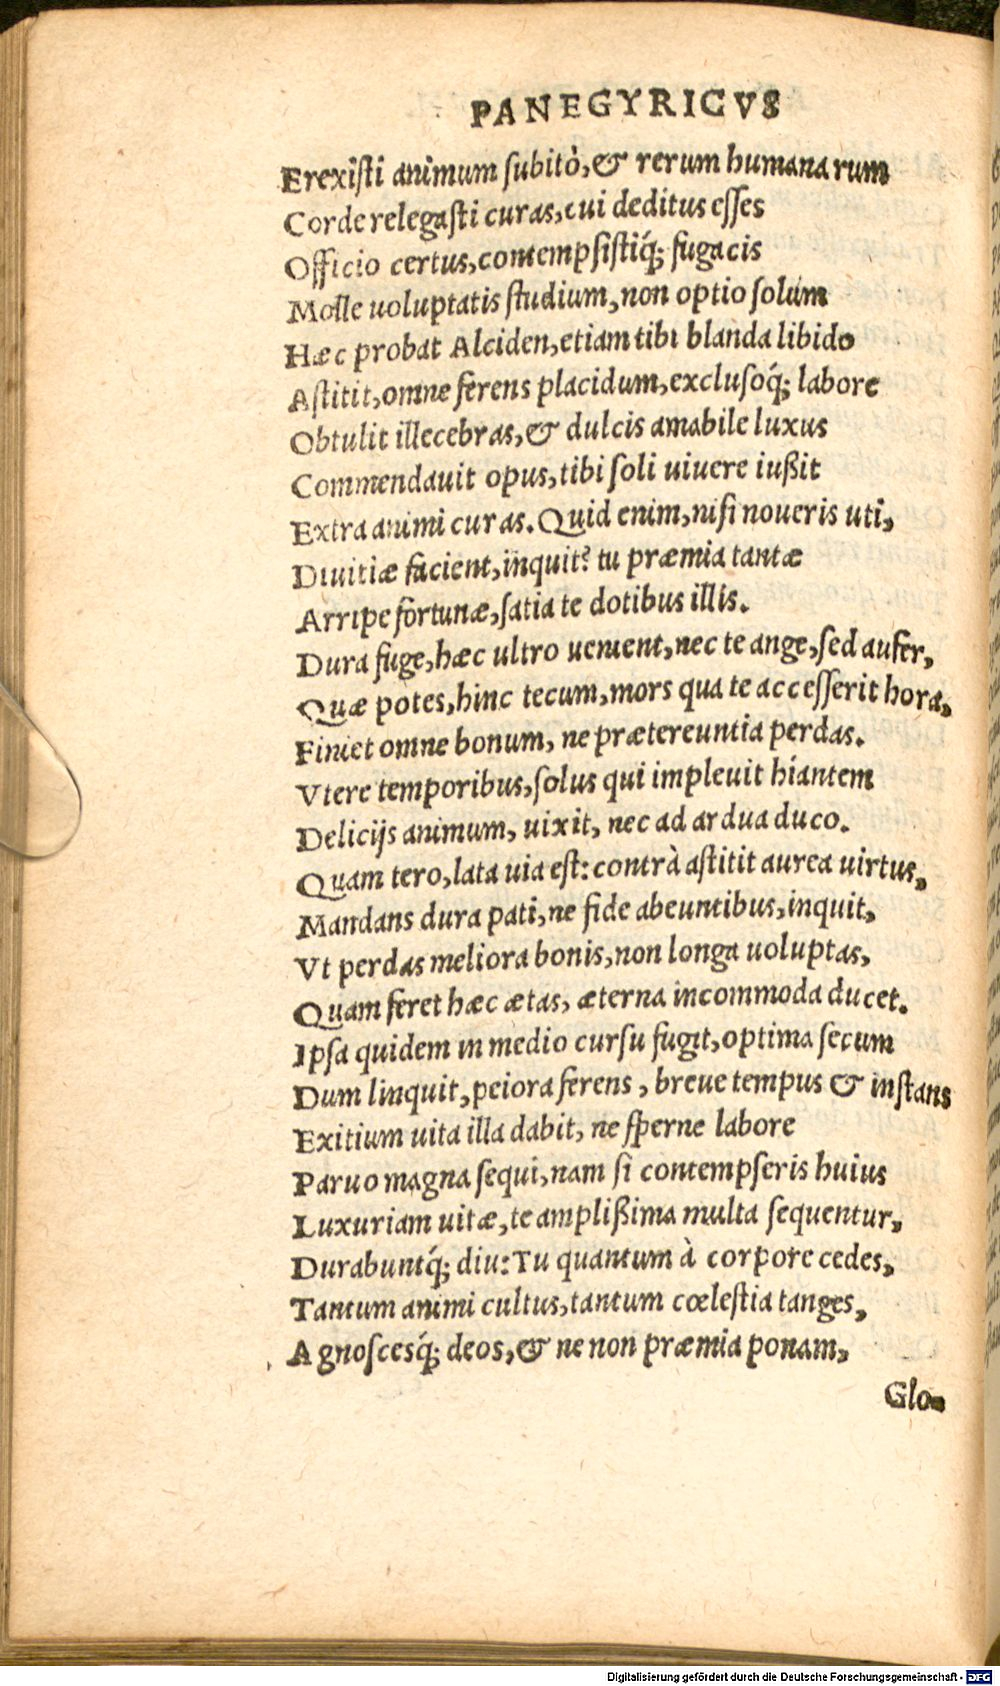 PANEGYRICVS
Erexiſti animum ſubitò, & rerum humanarum
Corde relegaſti curas, cui deditus eſſes
Officio certus, contempſiſtiq́; fugacis
Molle uoluptatis ſtudium, non optio ſolum
Hæc probat Alciden, etiam tibi blanda libido
Aſtitit, omne ferens placidum, excluſoq́; labore
Obtulit illecebras, & dulcis amabile luxus
Commendauit opus, tibi ſoli uiuere iußit
Extra animi curas. Quid enim, niſi noueris uti,
Diuitiæ facient, inquit? tu præmia tantæ
Arripe fortunæ, ſatia te dotibus illis.
Dura fuge, hæc ultro uenient, nec te ange, ſed aufer,
Quæ potes, hinc tecum, mors qua te acceſſerit hora,
Finiet omne bonum, ne prætereuntia perdas.
Vtere temporibus, ſolus qui impleuit hiantem
Delicijs animum, uixit, nec ad ardua duco.
Quam tero, lata uia eſt: contrà aſtitit aurea uirtus,
Mandans dura pati, ne fide abeuntibus, inquit,
Vt perdas meliora bonis, non longa uoluptas,
Quam feret hæc ætas, æterna incommoda ducet.
Ipſa quidem in medio curſu fugit, optima ſecum
Dum linquit, peiora ferens, breue tempus & inſtans
Exitium uita illa dabit, ne ſperne labore
Paruo magna ſequi, nam ſi contempſeris huius
Luxuriam uitæ, te amplißima multa ſequentur,
Durabuntq́; diu: Tu quantum à corpore cedes,
Tantum animi cultus, tantum cœleſtia tanges,
Agnoſcesq́; deos, & ne non præmia ponam,
Glo-
Digitalisierung gefördert durch die Deutsche Forschungsgemeinschaft - DFG